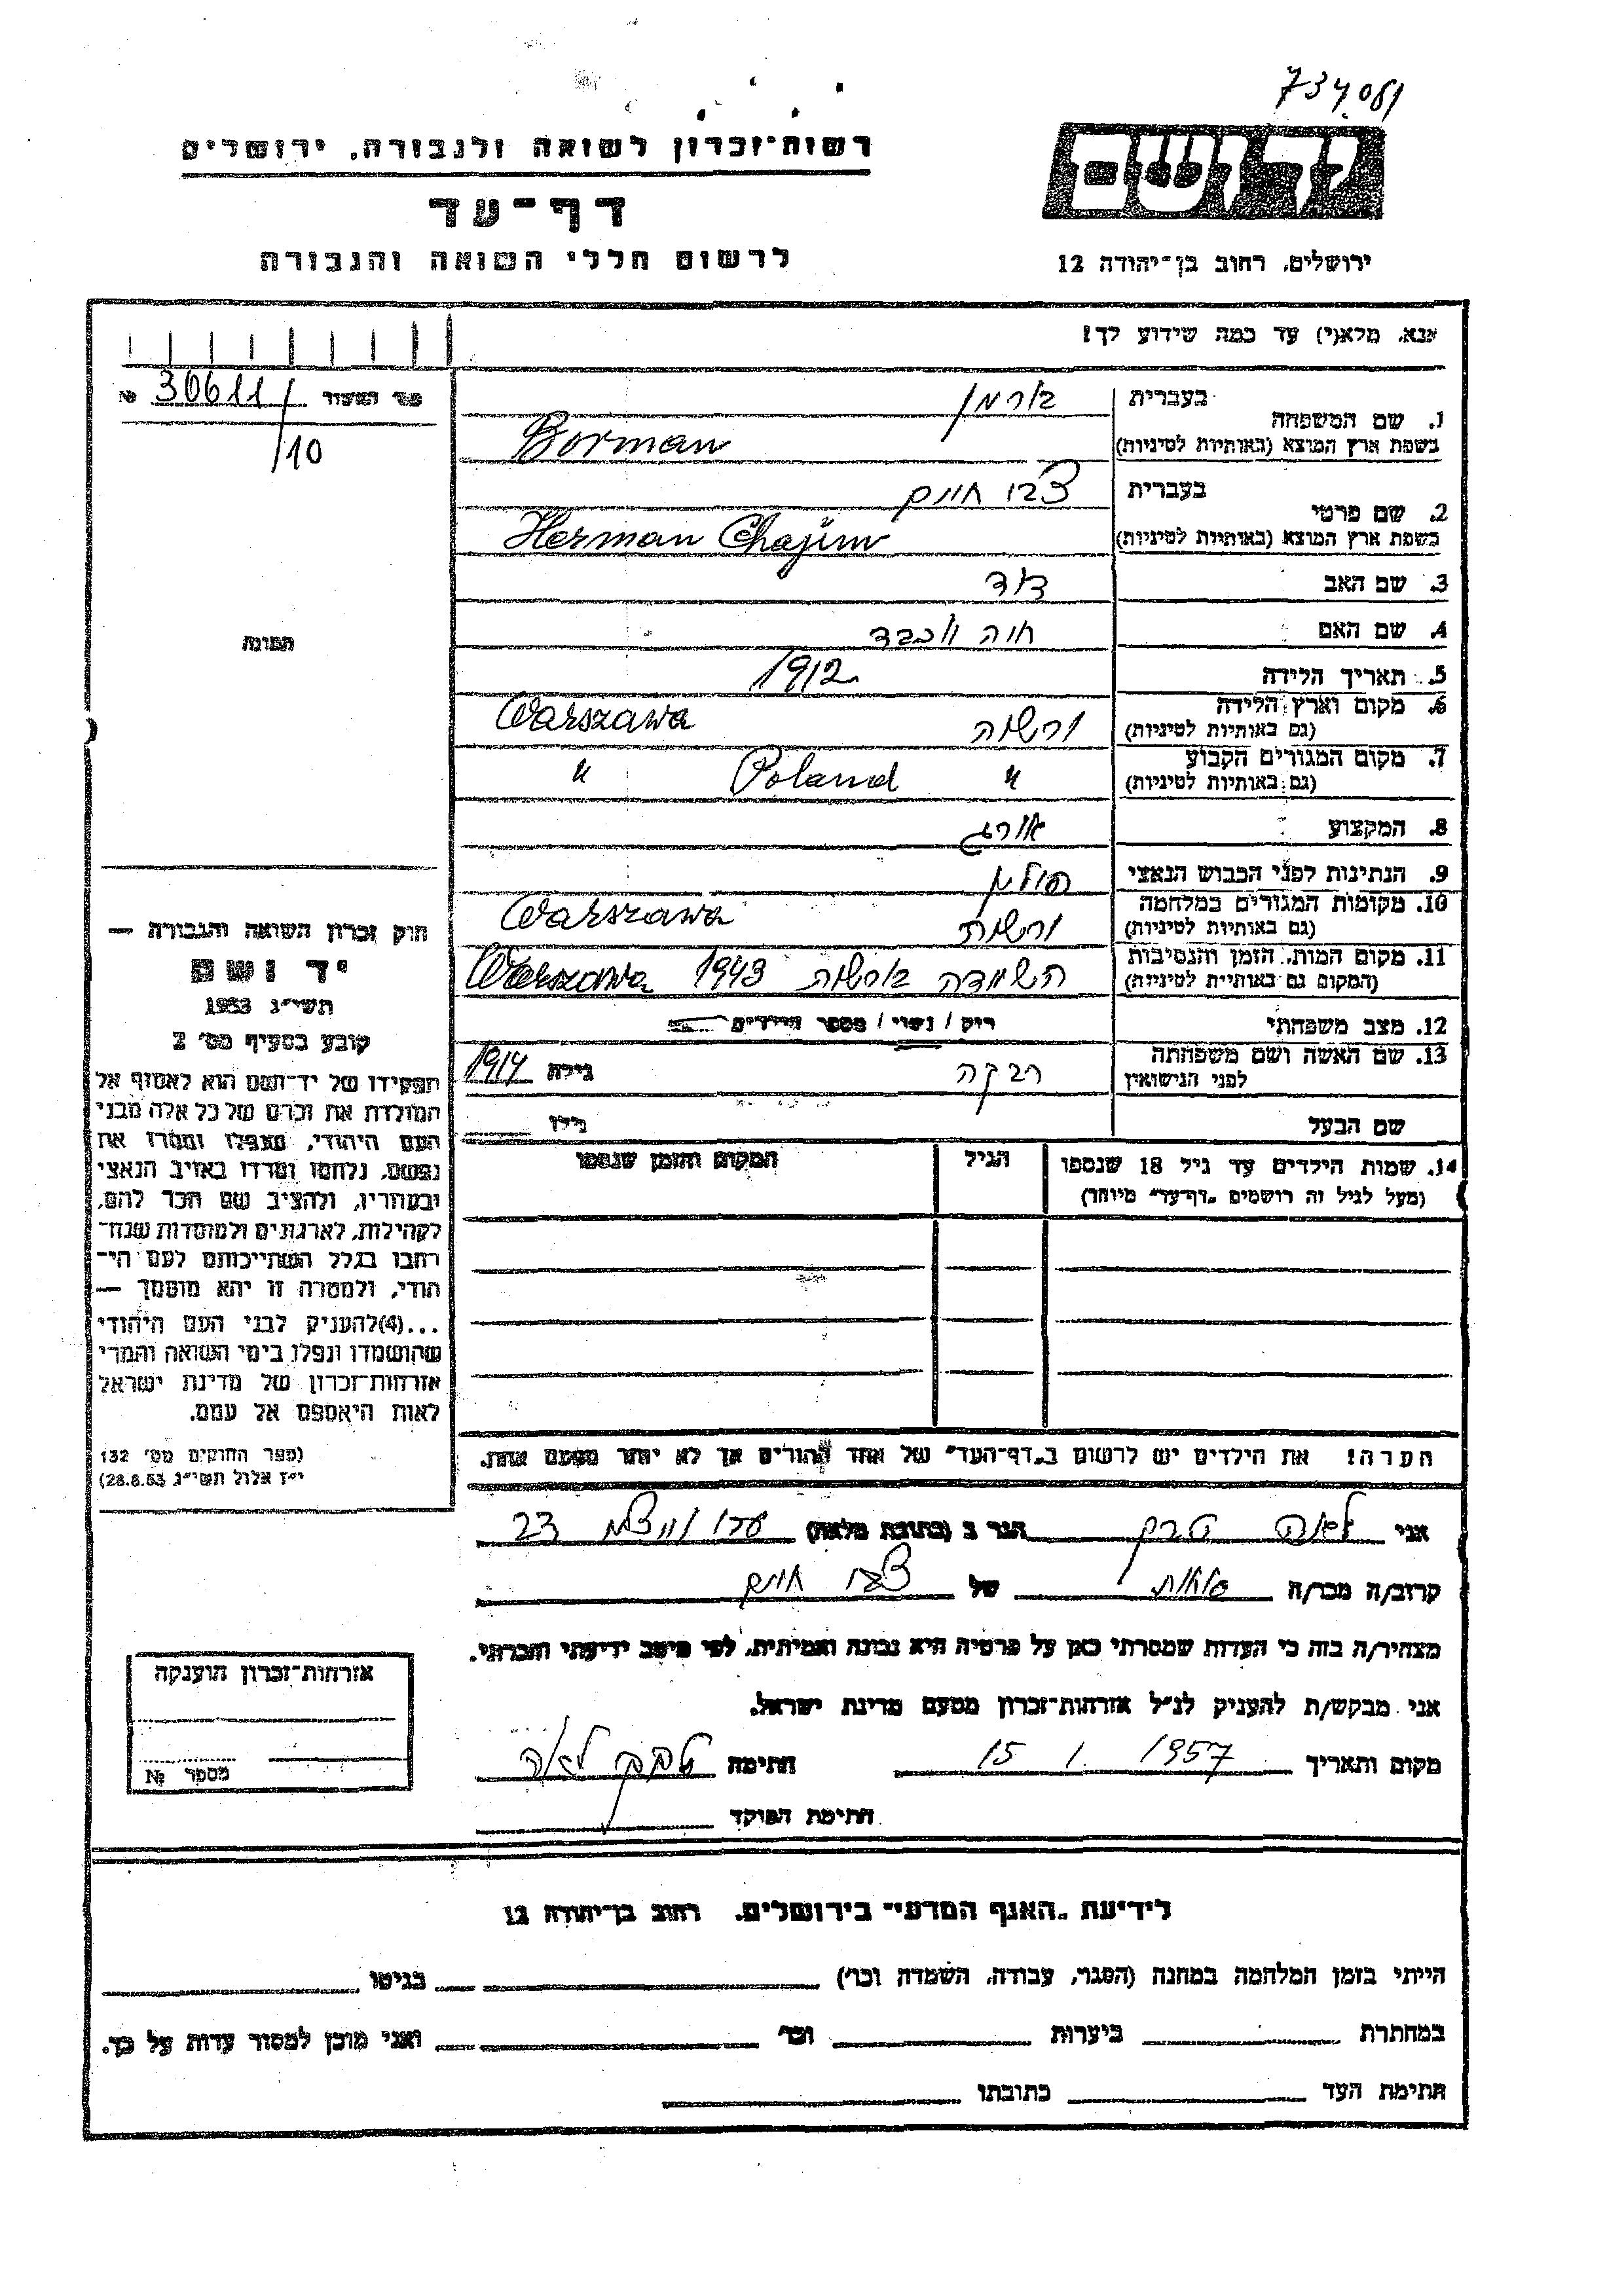 734081
רשות-זכרון לשואה ולגבורה, ירושלים
דף-עד
לרשום חללי השואה והגבורה
יד ושם
ירושלים, רחוב בן-יהודה 12
אנא, מלא(י) עד כמה שידוע לך!
מס׳ № 30611/
/10
1. שם המשפחה בעברית בורמן
בשפת ארץ המוצא (באותיות לטיניות) Borman
2. שם פרטי בעברית צבי חיים
בשפת ארץ המוצא (באותיות לטיניות) Herman Chajim
3. שם האב דוד
4. שם האם חיה יוכבד
5. תאריך הלידה 1912
6. מקום וארץ הלידה (גם באותיות לטיניות) ורשוה Warszawa
7. מקום המגורים הקבוע (גם באותיות לטיניות) " Poland "
8. המקצוע אורג
9. הנתינות לפני הכבוש הנאצי פולין
10. מקומות המגורים במלחמה (גם באותיות לטיניות) ורשות Warszawa
11. מקום המות, הזמן והנסיבות (המקום גם באותיית לטיניות) השמדה בורשוה 1943 Warszawa
12. מצב משפחתי רוק / נשוי / מספר הילדים
13. שם האשה ושם משפחתה לפני הנישואין רבקה גילה 1914
שם הבעל גילו
14. שמות הילדים עד גיל 18 שנספו (מעל לגיל זה רושמים "דף-עד" מיוחד) הגיל המקום והזמן שנספו
הערה! את הילדים יש לרשום ב"דף-העד" של אחד ההורים אך לא יותר מפעם אחת.
תמונה
חוק זכרון השואה והגבורה —
יד ושם
תשי״ג 1953
קובע בסעיף מס׳ 2
תפקידו של יד-ושם הוא לאסוף אל
המולדת את זכרם של כל אלה מבני
העם היהודי, שנפלו ומסרו את
נפשם, נלחמו ומרדו באויב הנאצי
ובעוזריו, ולהציב שם וזכר להם,
לקהילות, לארגונים ולמוסדות שנח־
רבו בגלל השתייכותם לעם הי־
הודי, ולמטרה זו יהא מוסמך —
...(4) להעניק לבני העם היהודי
שהושמדו ונפלו בימי השואה והמרי
אזרחות-זכרון של מדינת ישראל
לאות היאספם אל עמם.
(ספר החוקים מס׳ 132
י״ז אלול תשי״ג 28.8.53)
אני לאה הגר ב (כתובת מלאה) 23
קרוב/ה מכר/ה של צבי חיים
מצהיר/ה בזה כי העדות שמסרתי כאן על פרטיה היא נכונה ואמיתית, לפי מיטב ידיעתי והכרתי.
אני מבקש/ת להעניק לנ״ל אזרחות-זכרון מטעם מדינת ישראל.
מקום ותאריך 15 1. 1957 חתימה לאה
חתימת הפוקד
אזרחות-זכרון הוענקה
מספר №
לידיעת "האגף המדעי" בירושלים, רחוב בן-יהודה 12
הייתי בזמן המלחמה במחנה (הסגר, עבודה, השמדה וכו׳) בגיטו
במחתרת ביערות וכו׳ ואני מוכן למסור עדות על כך.
חתימת העד כתובתו